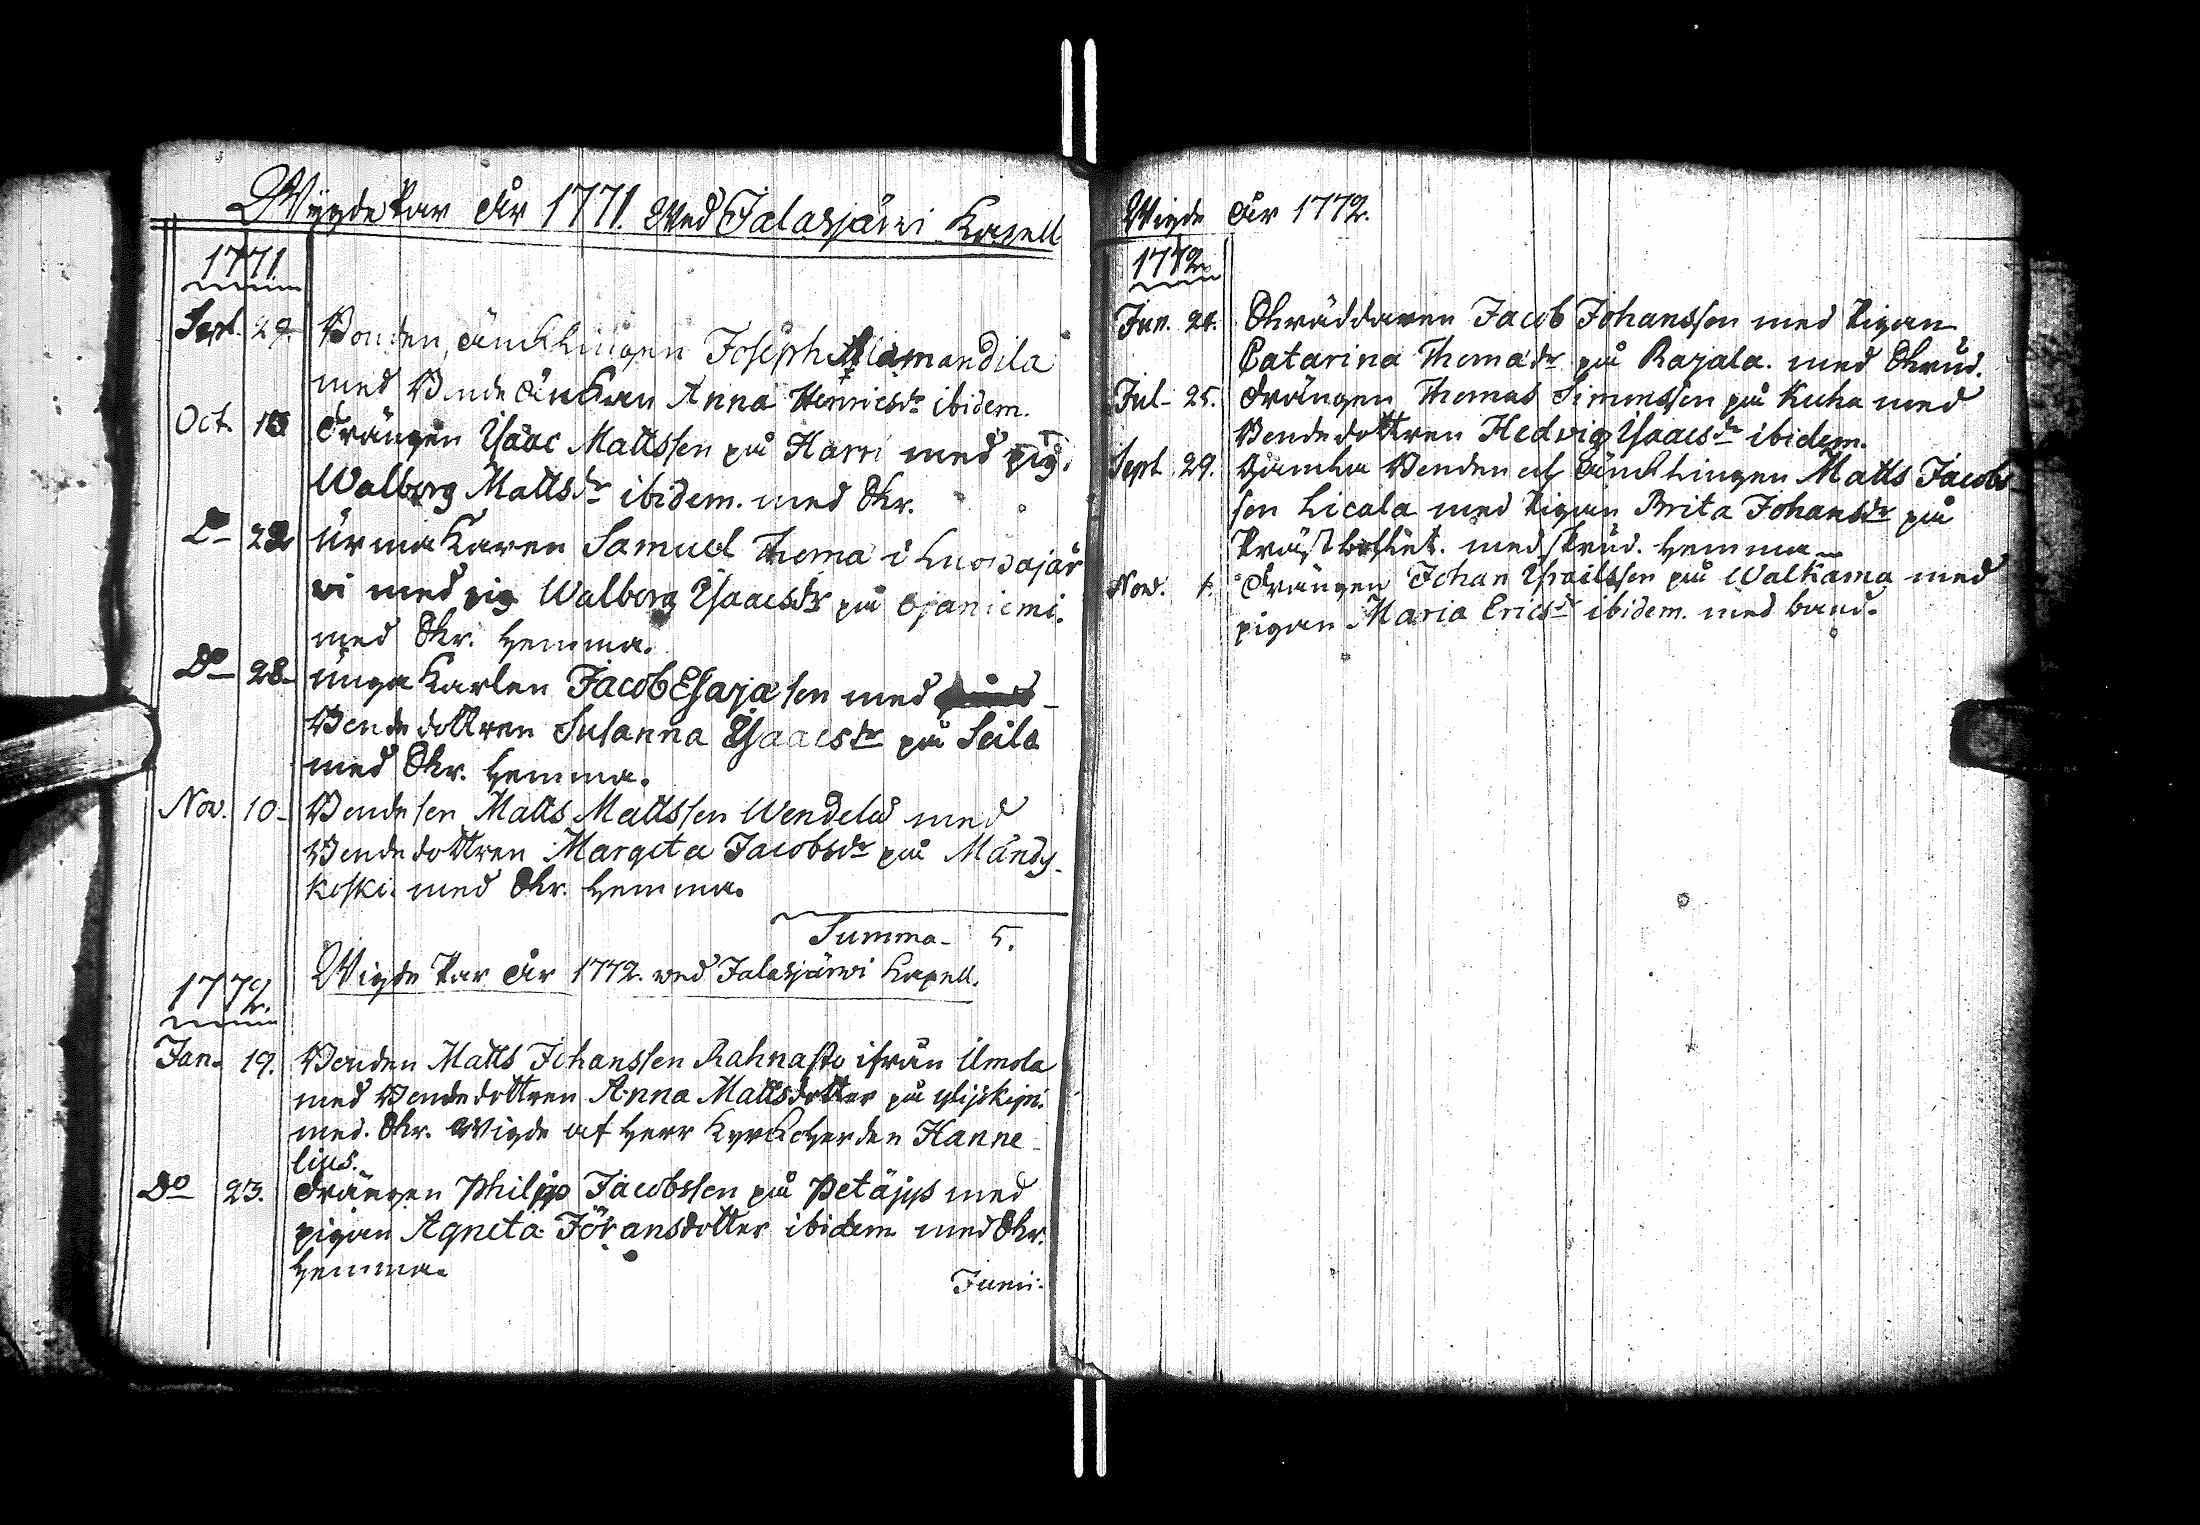 Wigde Par År 1771. Wed Jalasjärvi Kapell
1771.
Sept. 29. Bonden, äncklingen Joseph Alamandila
med Bonde änckan Anna Henricsdr ibidem.
Oct. 13 Drängen Isaac Mattssen på Harri med pig.
Walborg Mattsdr ibidem. med Skr.
Do 22 Urmakaren Samuel Thoma i Luopajär
vi med pig Walborg Isaacsdr på Ojaniemi.
med Skr. hemma.
Do 28. unga Karlen Jacob Esajasen med
Bondedottren Susanna Isaacsdr på Seila
med Skr. hemma.
Nov. 10. Bondesen Matts Mattssen Wendelä med
Bondedottren Margeta Jacobsdr på Mändy-
koski. med Skr. hemma.
Summa. 5.
Wigde Par År 1772. wed Jalasjärvi Kapell.
1772.
Jan. 19. Bonden Matts Johanssen Rahnasto ifrån Ilmola
med Bondedottren Anna Mattsdotter på
med. Skr. Wigde af Herr Kyrckoherden Hanne-
lius.
Do 23. Drängen Philpp Jacobssen på Petäjys med
pigan Agneta Göransdotter ibidem med Skr.
hemma.
Junii:
Wigde År 1772.
1772
Jun. 24. Skräddaren Jacob Johanssen med Pigan
Catarina Thomadr på Rajala. med Skrud.
Jul. 25. Drängen Thomas Simonssen på Kuha med
Bondedottren Hedvig Isaacsdr ibidem.
Sept. 29. Gamla Bonden och änklingen Matts Jacobs-
sen Licala med Pigan Brita Johansdr på
Prästbohlet. med skrud. hemma
Nov. 1. Drängen Johan Israelssen på Walkama med
pigan Maria Ericsdr ibidem. med band.